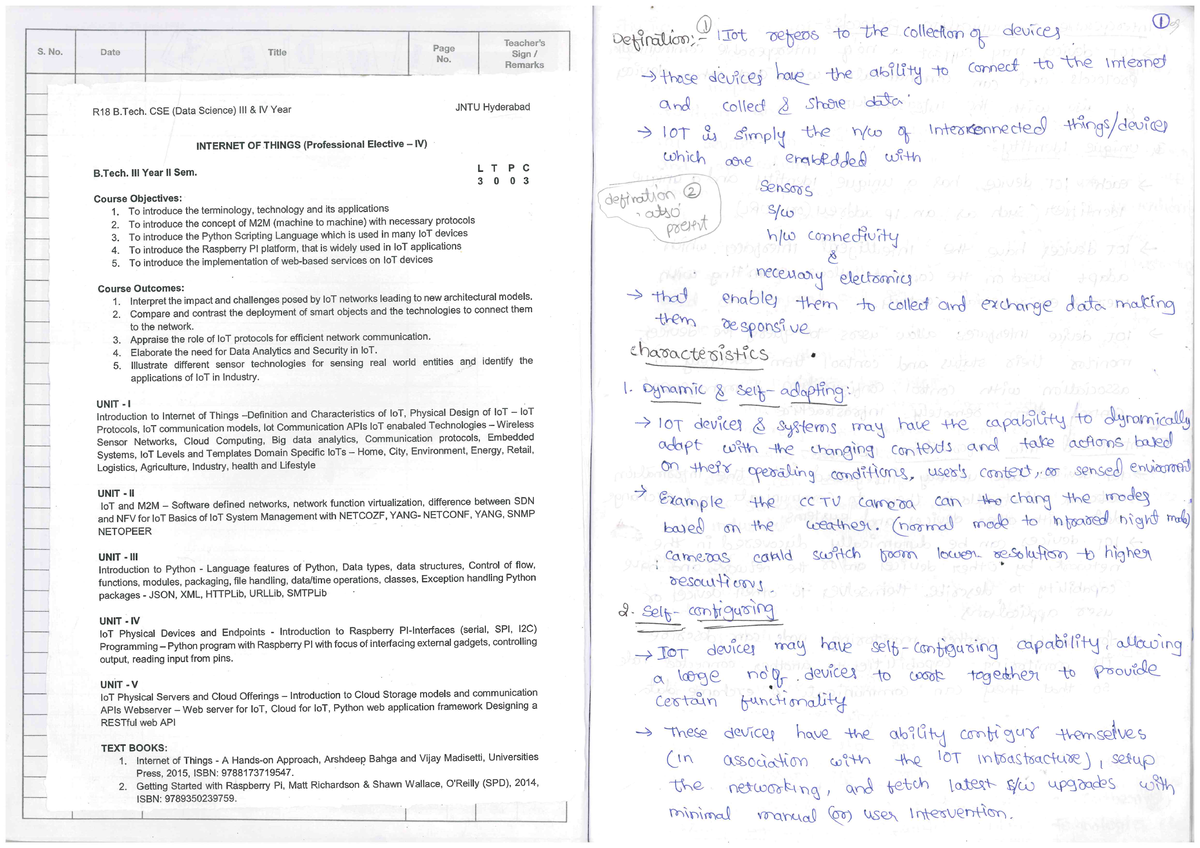 S. No.
Date
Title
Page
No.
Teacher's
Sign /
Remarks
R18 B.Tech. CSE (Data Science) III & IV Year
JNTU Hyderabad
INTERNET OF THINGS (Professional Elective – IV)
B.Tech. III Year II Sem.
L T P C
3 0 0 3
Course Objectives:
1. To introduce the terminology, technology and its applications
2. To introduce the concept of M2M (machine to machine) with necessary protocols
3. To introduce the Python Scripting Language which is used in many IoT devices
4. To introduce the Raspberry PI platform, that is widely used in IoT applications
5. To introduce the implementation of web-based services on IoT devices
Course Outcomes:
1. Interpret the impact and challenges posed by IoT networks leading to new architectural models.
2. Compare and contrast the deployment of smart objects and the technologies to connect them
to the network.
3. Appraise the role of IoT protocols for efficient network communication.
4. Elaborate the need for Data Analytics and Security in IoT.
5. Illustrate different sensor technologies for sensing real world entities and identify the
applications of IoT in Industry.
UNIT - I
Introduction to Internet of Things –Definition and Characteristics of IoT, Physical Design of IoT – IoT
Protocols, IoT communication models, Iot Communication APIs IoT enabaled Technologies – Wireless
Sensor Networks, Cloud Computing, Big data analytics, Communication protocols, Embedded
Systems, IoT Levels and Templates Domain Specific IoTs – Home, City, Environment, Energy, Retail,
Logistics, Agriculture, Industry, health and Lifestyle
UNIT - II
IoT and M2M – Software defined networks, network function virtualization, difference between SDN
and NFV for IoT Basics of IoT System Management with NETCOZF, YANG- NETCONF, YANG, SNMP
NETOPEER
UNIT - III
Introduction to Python - Language features of Python, Data types, data structures, Control of flow,
functions, modules, packaging, file handling, data/time operations, classes, Exception handling Python
packages - JSON, XML, HTTPLib, URLLib, SMTPLib
UNIT - IV
IoT Physical Devices and Endpoints - Introduction to Raspberry PI-Interfaces (serial, SPI, I2C)
Programming – Python program with Raspberry PI with focus of interfacing external gadgets, controlling
output, reading input from pins.
UNIT - V
IoT Physical Servers and Cloud Offerings – Introduction to Cloud Storage models and communication
APIs Webserver – Web server for IoT, Cloud for IoT, Python web application framework Designing a
RESTful web API
TEXT BOOKS:
1. Internet of Things - A Hands-on Approach, Arshdeep Bahga and Vijay Madisetti, Universities
Press, 2015, ISBN: 9788173719547.
2. Getting Started with Raspberry Pi, Matt Richardson & Shawn Wallace, O'Reilly (SPD), 2014,
ISBN: 9789350239759.
1
Defination:- 1 IIot refers to the collection of devices
→ those devices have the ability to connect to the Internet
and collect & share data.
→ IOT is simply the n/w of Interconnected things/devices
which are enabedded with
defination 2
also
present
Sensors
S/w
h/w connectivity
&
necessary electronics
→ that enables them to collect and exchange data making
them responsive
characteristics
1. Dynamic & Self-adapting:
→ IOT devices & systems may have the capability to dynamically
adapt with the changing contexts and take actions based
on their operating conditions, user's context, or sensed enviroment
→ Example the CCTV camera can the chang the modes
based on the weather. (normal mode to Infrared night mode)
cameras could switch from lower resolution to higher
resolutions.
2. Self-configuring
→ IOT devices may have self-configuring capability, allowing
a large no'of devices to work together to provide
certain functionality
→ These devices have the ability configur themselves
(in association with the IOT infrastracture), setup
the networking, and fetch latest S/w upgrades with
minimal manual (or) user Intervention.